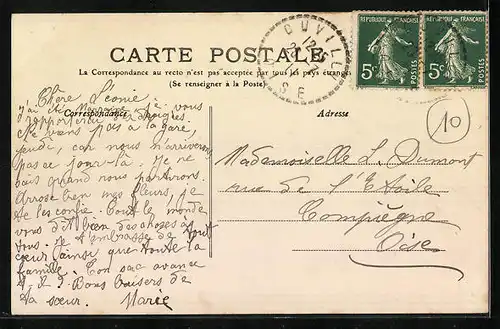 OUVILLE
RÉPUBLIQUE FRANÇAISE
RÉPUBLIQUE FRANÇAISE
5c
5c
CARTE POSTALE
La Correspondance au recto n'est pas acceptée par tous les pays étrangers
(Se renseigner à la Poste)
Correspondance
Adresse
10
Chère Léonie
vous
Ne viens pas à la gare,
jeudi, car nous n'arriverons
pas ce jour-là. Je ne
sais quand nous partirons.
Arrose bien mes fleurs, je
te les confie. Tout le monde
vous dit bien des choses à
tous. Je t'embrasse de tout
cœur ainsi que toute la
famille. Ton sac avance
Bons baisers de
ta sœur. Marie
Mademoiselle L. Dumont
rue de l'Etoile
Compiègne
Oise